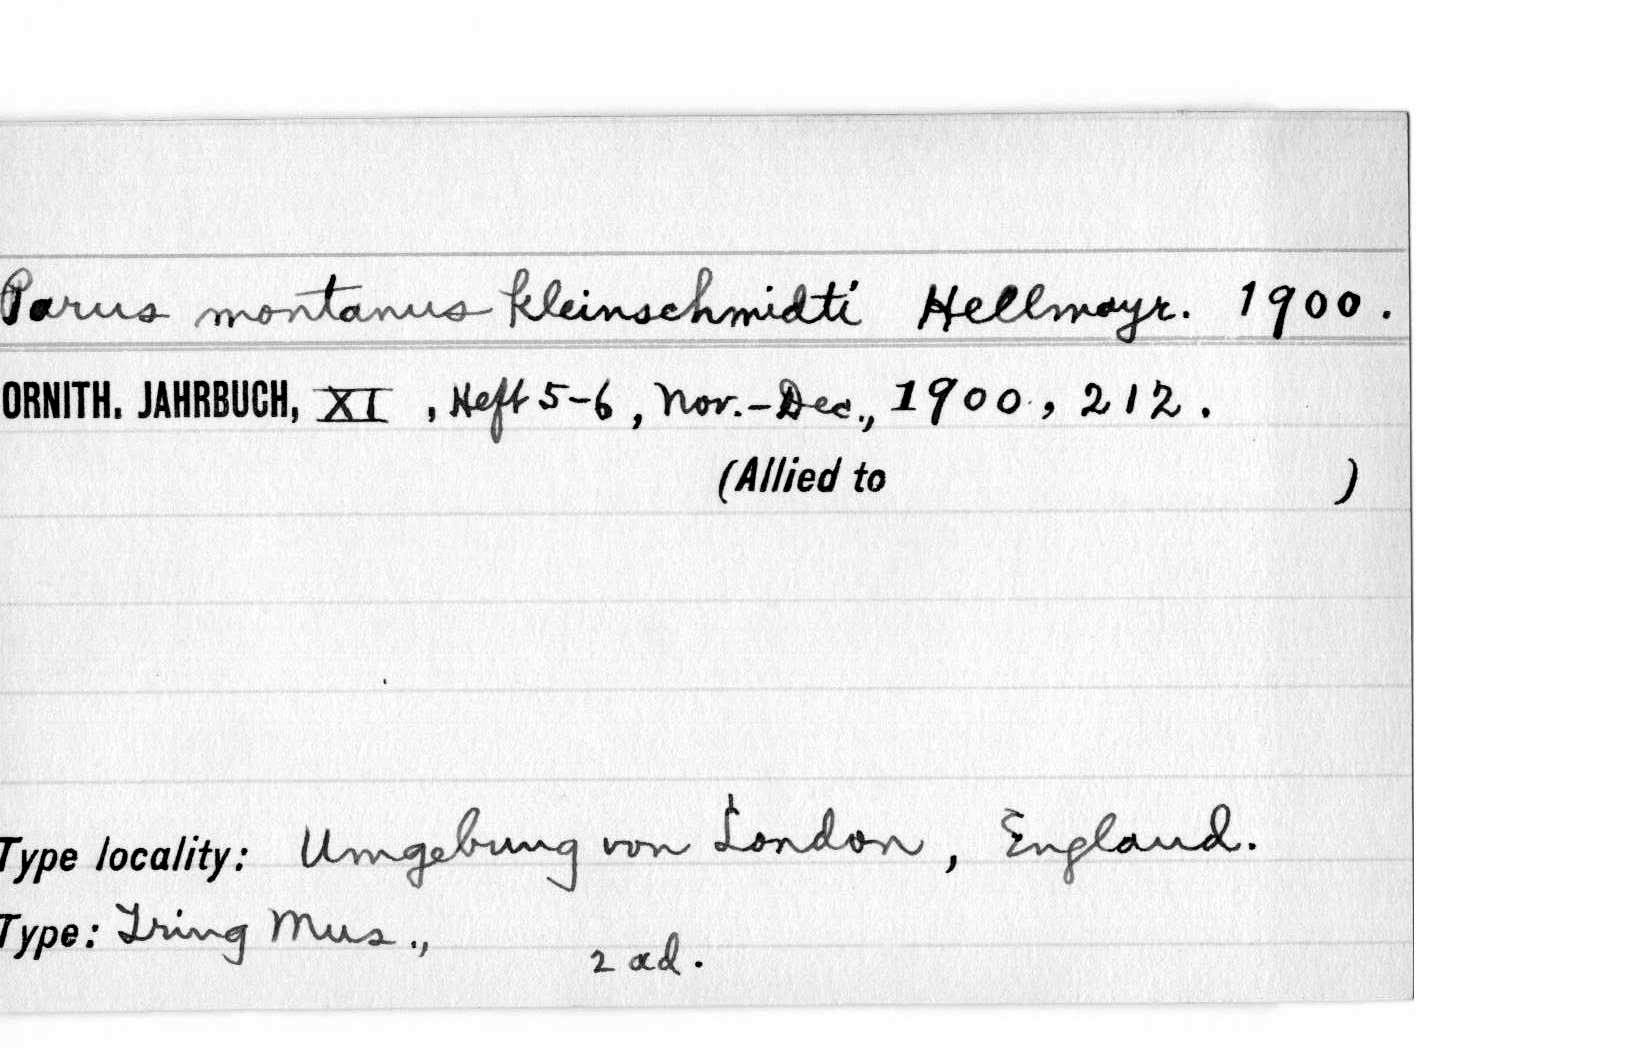 Parus montanus kleinschmidti Hellmayr. 1900.
ORNITH. JAHRBUCH, XI, Heft 5-6, Nov.-Dec., 1900, 212.
(Allied to )
Type locality: Umgebung von London, England.
Type: Tring Mus.,
2 ad.